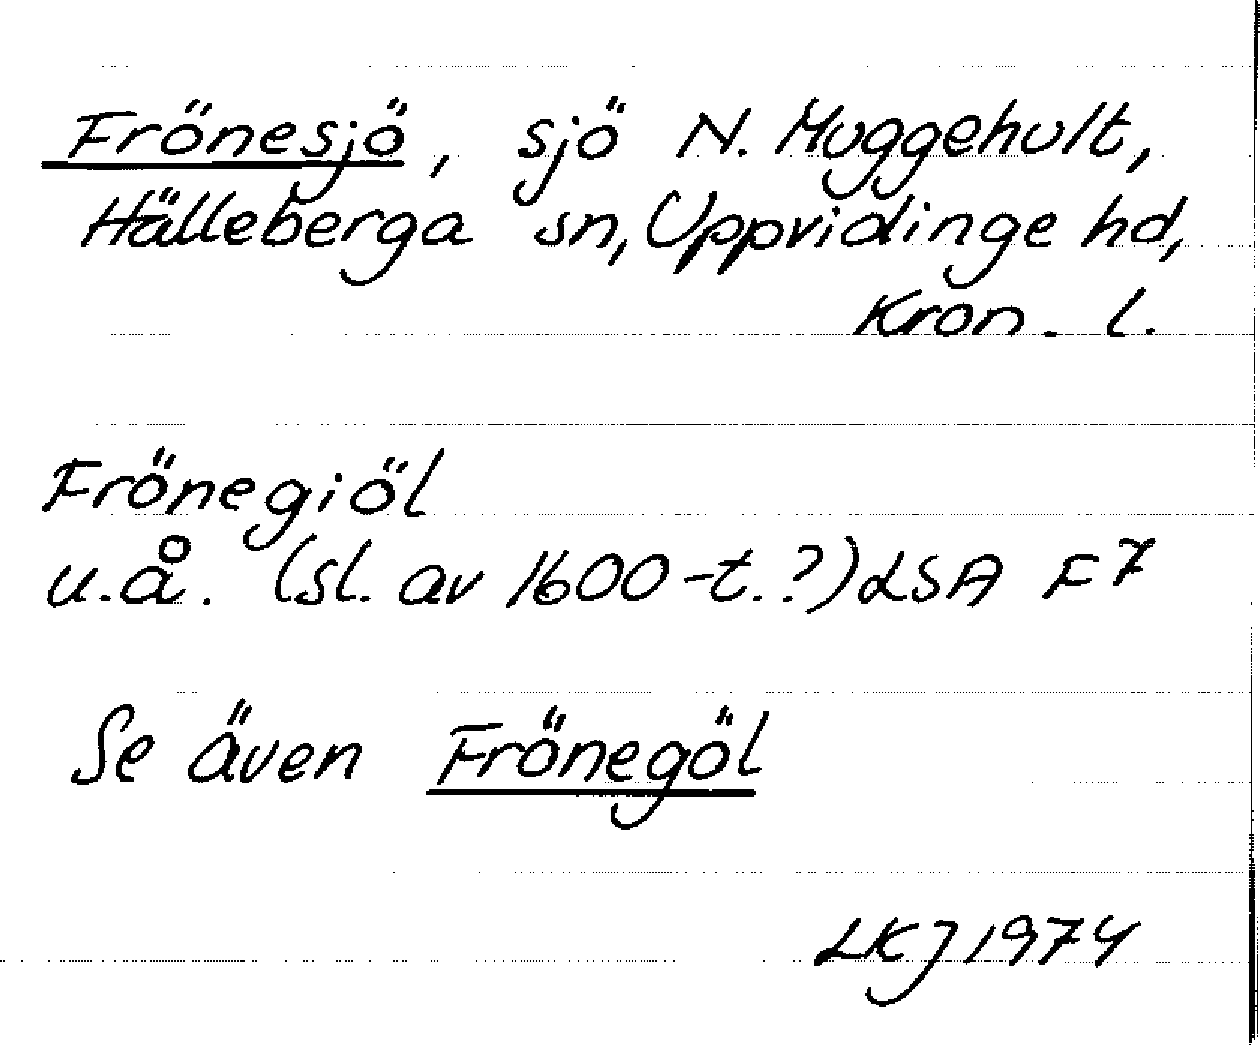 Frönesjö, sjö N. Muggehult,
Hälleberga sn, Uppvidinge hd,
Kron. l.
Frönegiöl
u.å. (sl. av 1600-t.?) LSA F7
Se även Frönegöl
LKJ 1974